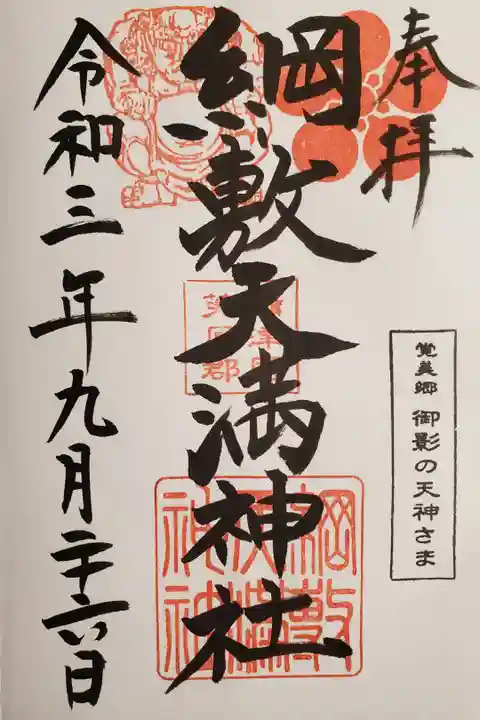 奉拝
覚美郷 御影の天神さま
綱敷天満神社
令和三年九月二十六日